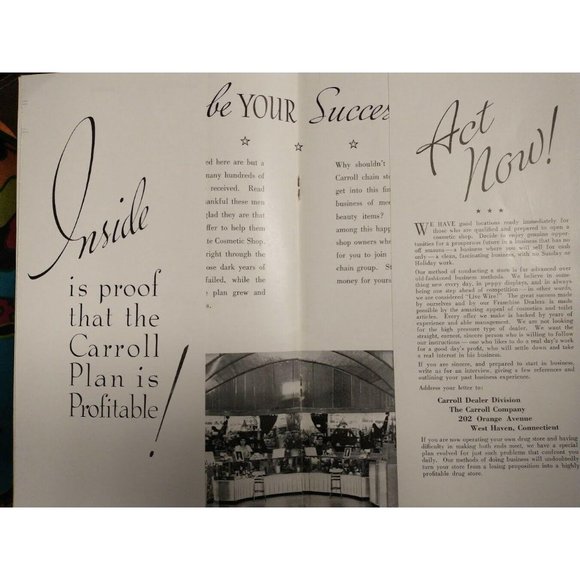 Inside
is proof
that the
Carroll
Plan is
Profitable!
be YOUR Succes
ed here are but a
many hundreds of
received. Read
thankful these men
glad they are that
offer to help them
te Cosmetic Shop.
right through the
ose dark years of
failed, while the
plan grew and
s.
Why shouldn't
Carroll chain sto
get into this fin
business of me
beauty items?
among this hap
shop owners wh
for you to join
chain group. St
money for yours
Act
Now!
WE HAVE good locations ready immediately for
those who are qualified and prepared to open a
cosmetic shop. Decide to enjoy genuine oppor-
tunities for a prosperous future in a business that has no
off seasons—a business where you will sell for cash
only—a clean, fascinating business, with no Sunday or
Holiday work.
Our method of conducting a store is far advanced over
old-fashioned business methods. We believe in some-
thing new every day, in peppy displays, and in always
being one step ahead of competition—in other words,
we are considered "Live Wire!" The great success made
by ourselves and by our Franchise Dealers is made
possible by the amazing appeal of cosmetics and toilet
articles. Every offer we make is backed by years of
experience and able management. We are not looking
for the high pressure type of dealer. We want the
straight, earnest, sincere person who is willing to follow
our instructions—one who likes to do a real day's work
for a good day's profit, who will settle down and take
a real interest in his business.
If you are sincere, and prepared to start in business,
write us for an interview, giving a few references and
outlining your past business experience.
Address your letter to:
Carroll Dealer Division
The Carroll Company
202 Orange Avenue
West Haven, Connecticut
If you are now operating your own drug store and having
difficulty in making both ends meet, we have a special
plan evolved for just such problems that confront you
daily. Our methods of doing business will undoubtedly
turn your store from a losing proposition into a highly
profitable drug store.